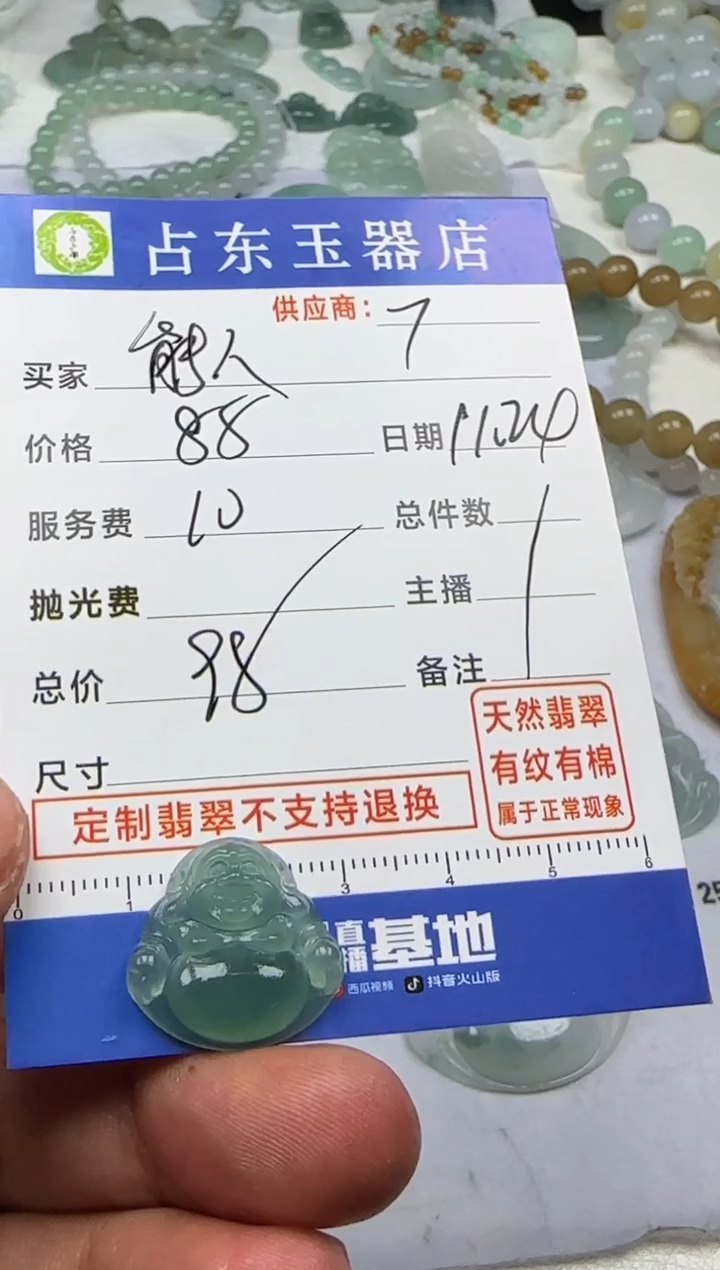 占东玉器店
供应商： 7
买家 能人
价格 88 日期 11.24
服务费 10 总件数
抛光费 主播
总价 98 备注
尺寸
天然翡翠
有纹有棉
属于正常现象
定制翡翠不支持退换
0 1 3 4 5 6
直播基地
西瓜视频 抖音火山版
25